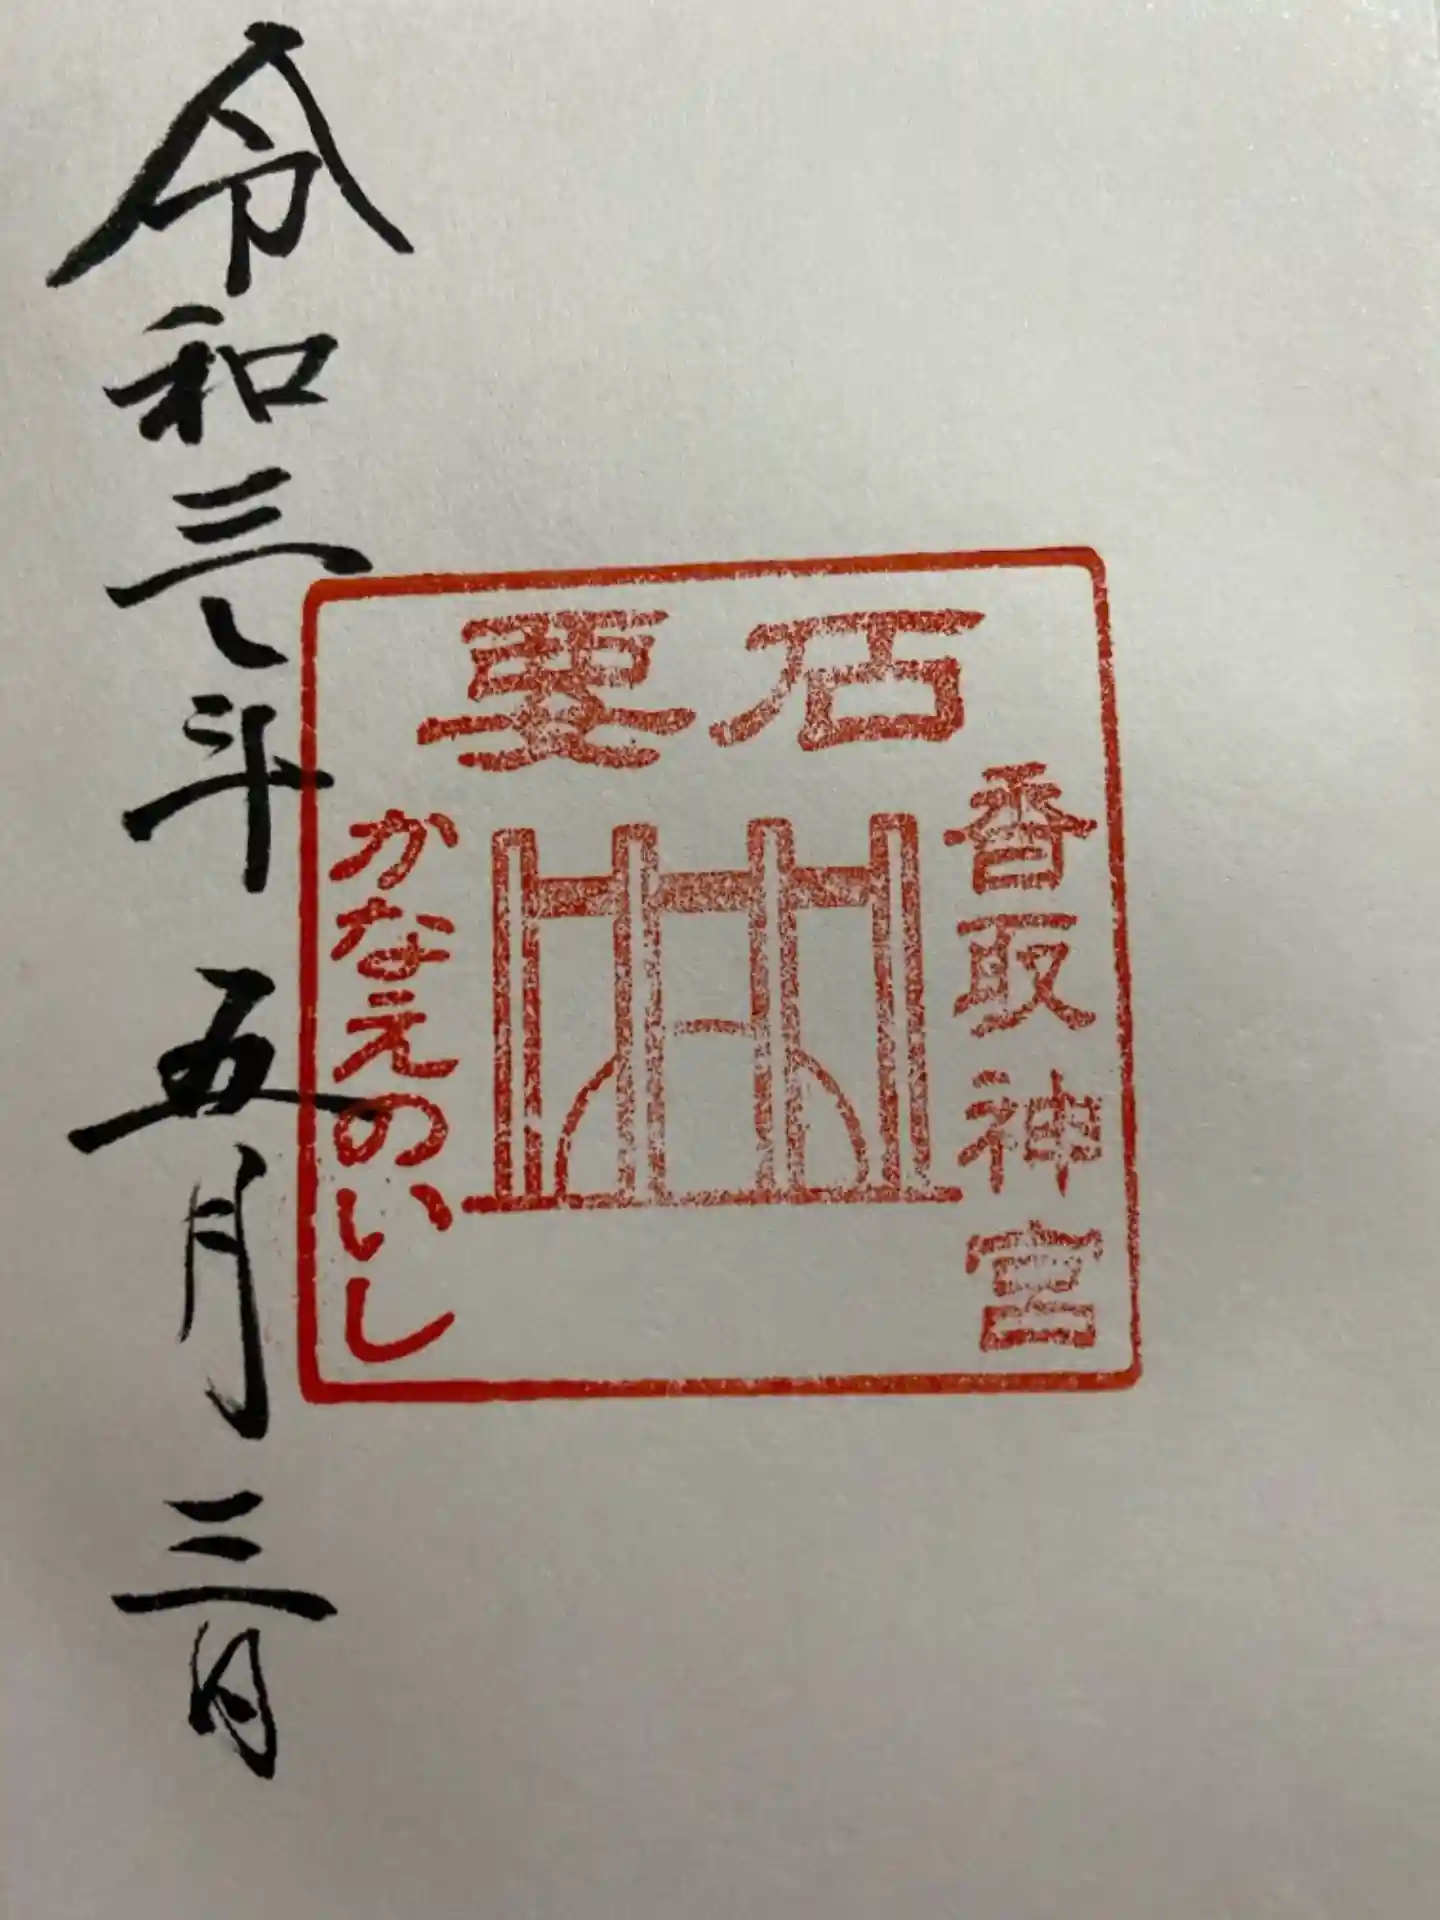 要石
香取神宮
かなえのいし
令和三年五月三日